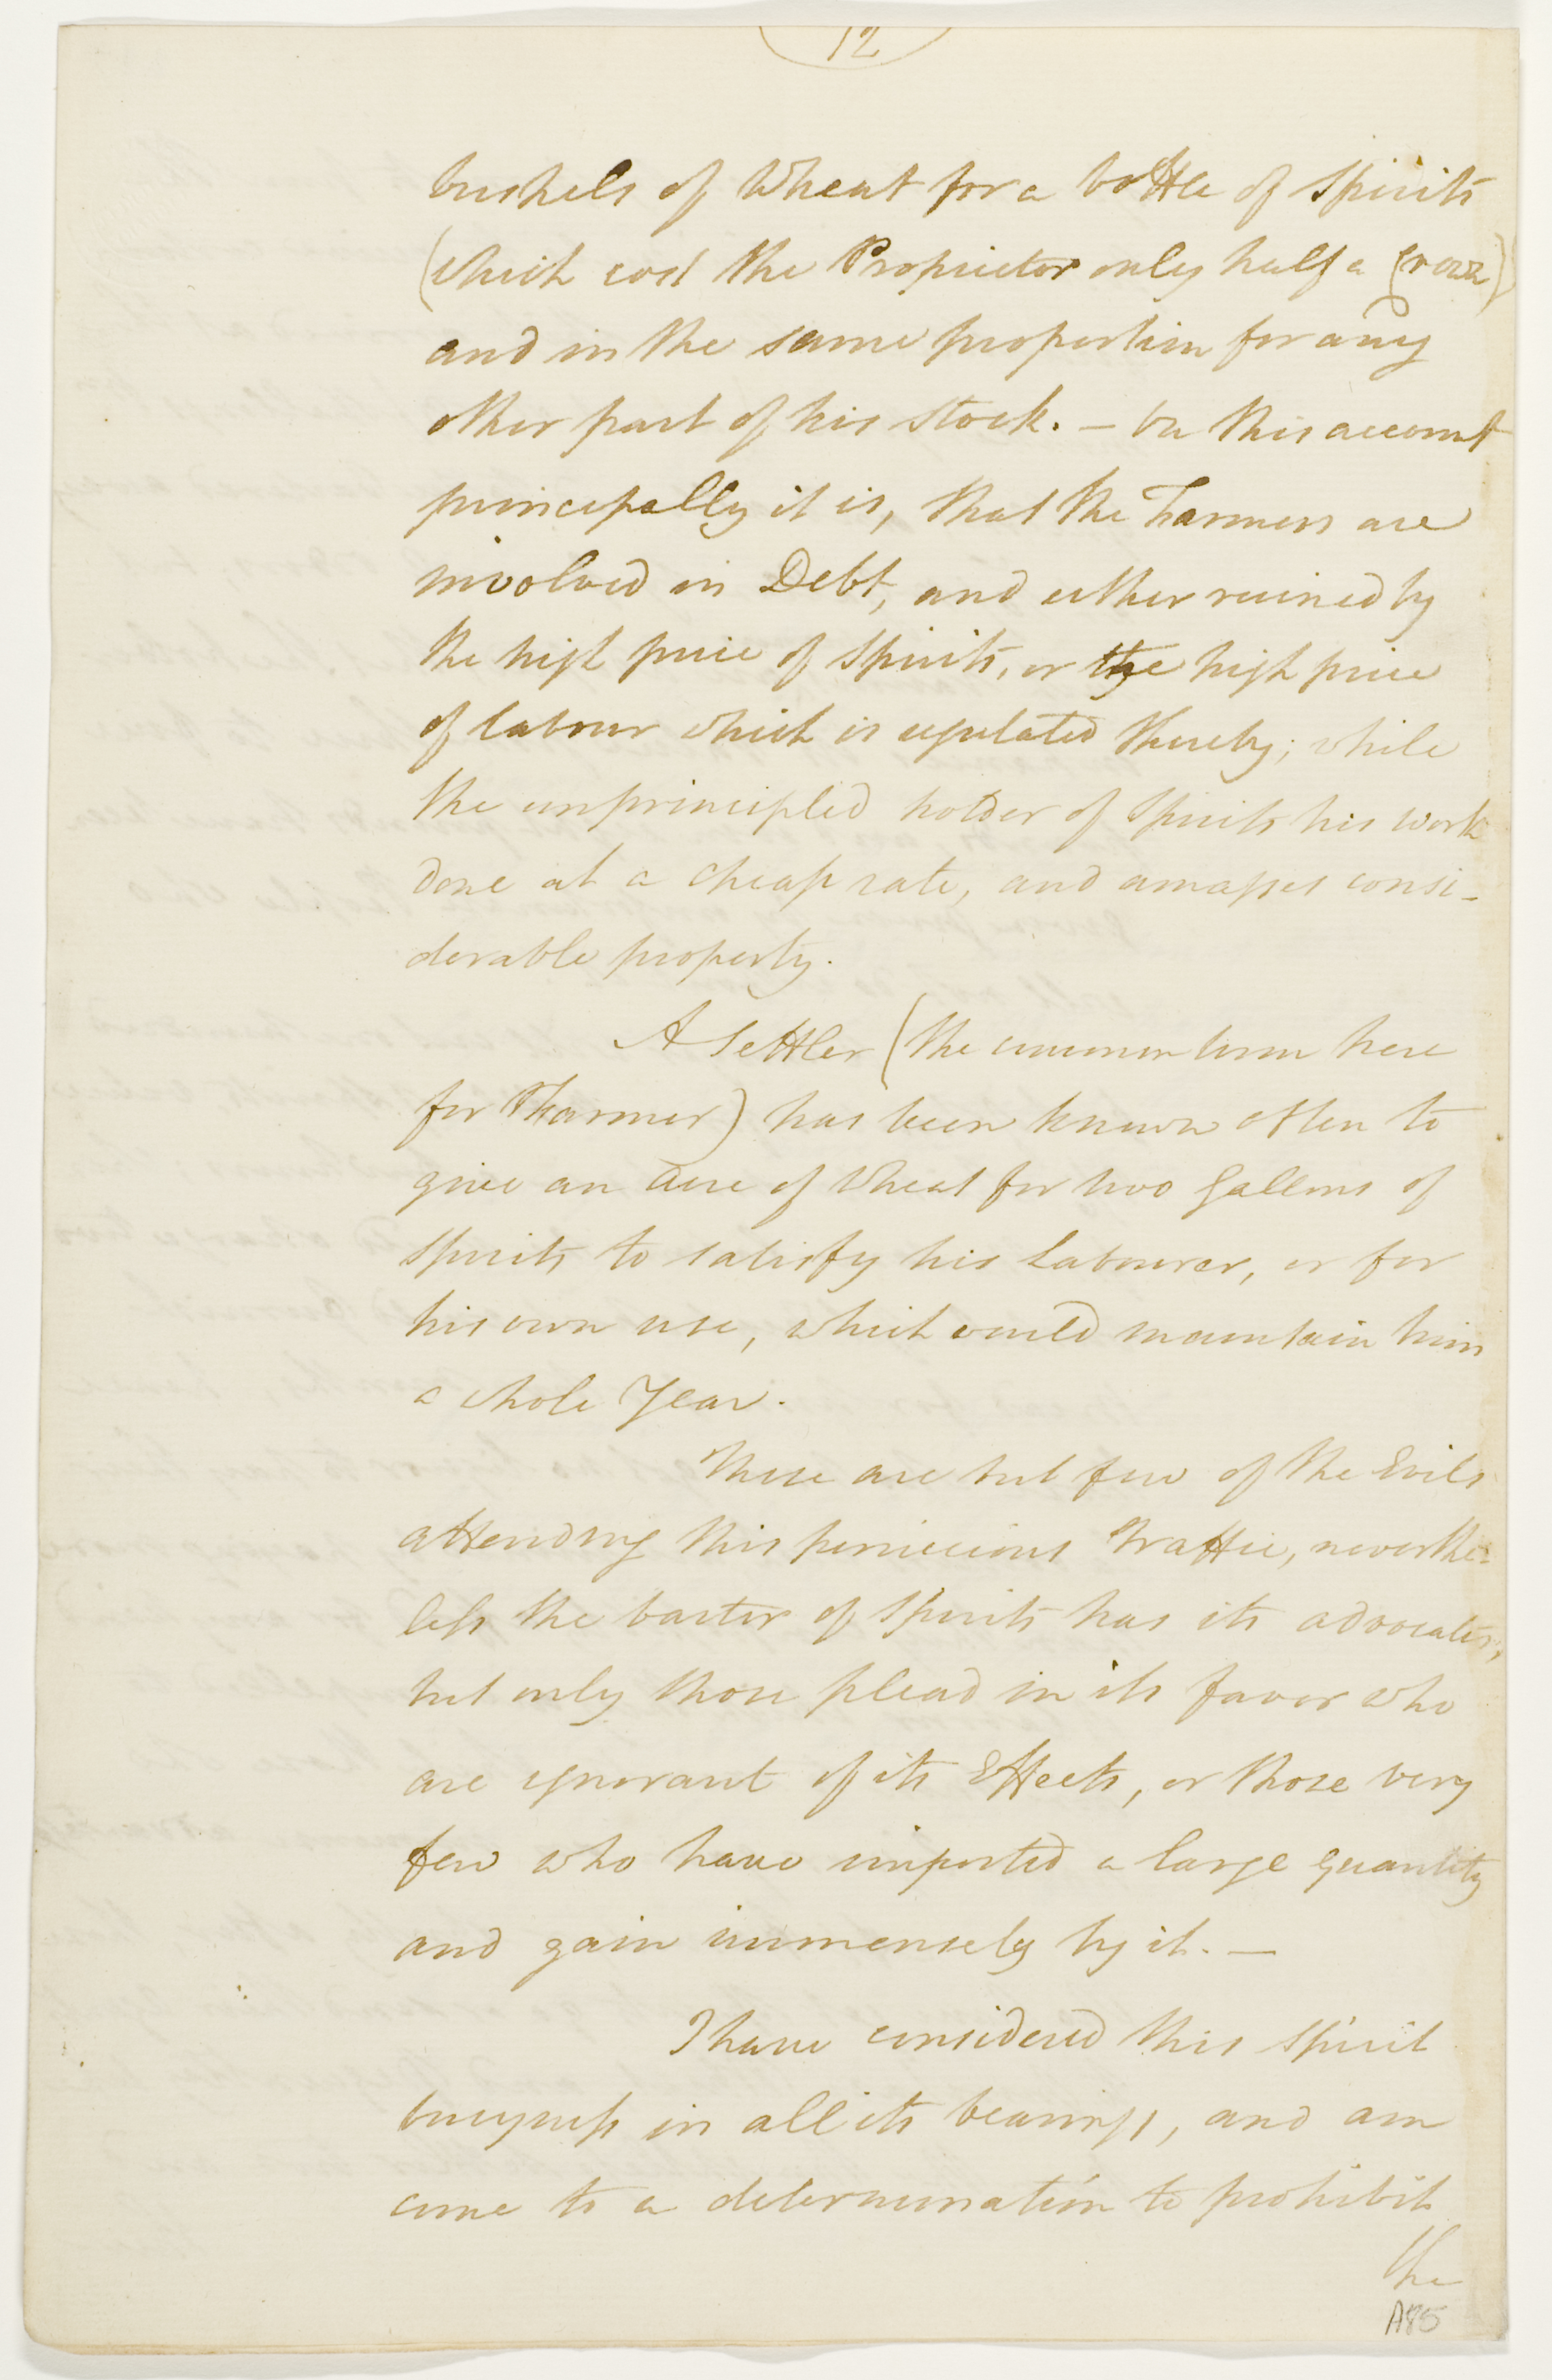 12
bushels of Wheat for a bottle of Spirits
(which cost the Proprietor only half a Crown)
and in the same proportion for any
other part of his Stock. — On this account
principally it is, that the Farmers are
involved in Debt, and either ruined by
the high price of Spirits, or the high price
of labour which is regulated thereby; while
the unprincipled holder of Spirits his work
done at a cheap rate, and amasses consi-
derable property.
A Settler (the common term here
for Farmer) has been known often to
give an Acre of Wheat for two Gallons of
Spirits to satisfy his Labourer, or for
his own use, which would maintain him
a whole Year.
These are but few of the Evils
attending this pernicious Traffic, neverthe-
less the barter of Spirits has its advocates,
but only those plead in its favor who
are ignorant of its Effects, or those very
few who have imported a large quantity
and gain immensely by it. —
I have considered this Spirit
busyness in all its bearings, and am
come to a determination to prohibit
the
A85